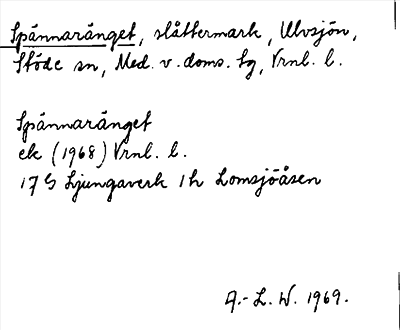 Spännaränget, slåttermark, Ulvsjön,
Stöde sn, Med. v. doms. lg, Vrnl. l.
Spännaränget
ek (1968) Vrnl. l.
17 G Ljungaverk 1 h Lomsjöåsen
A.-L. W. 1969.